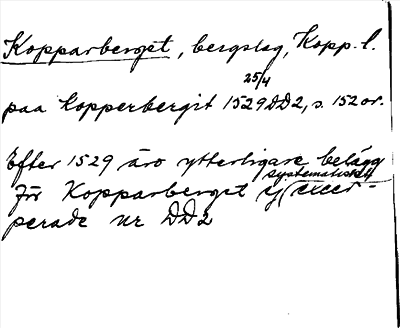 Kopparberget, bergslag, Kopp. l.
25/4
paa kopperbergit 1529 DD2, s. 152 or.
Efter 1529 äro ytterligare belägg
systematiskt
för Kopparberget ej excer-
perade ur DD2